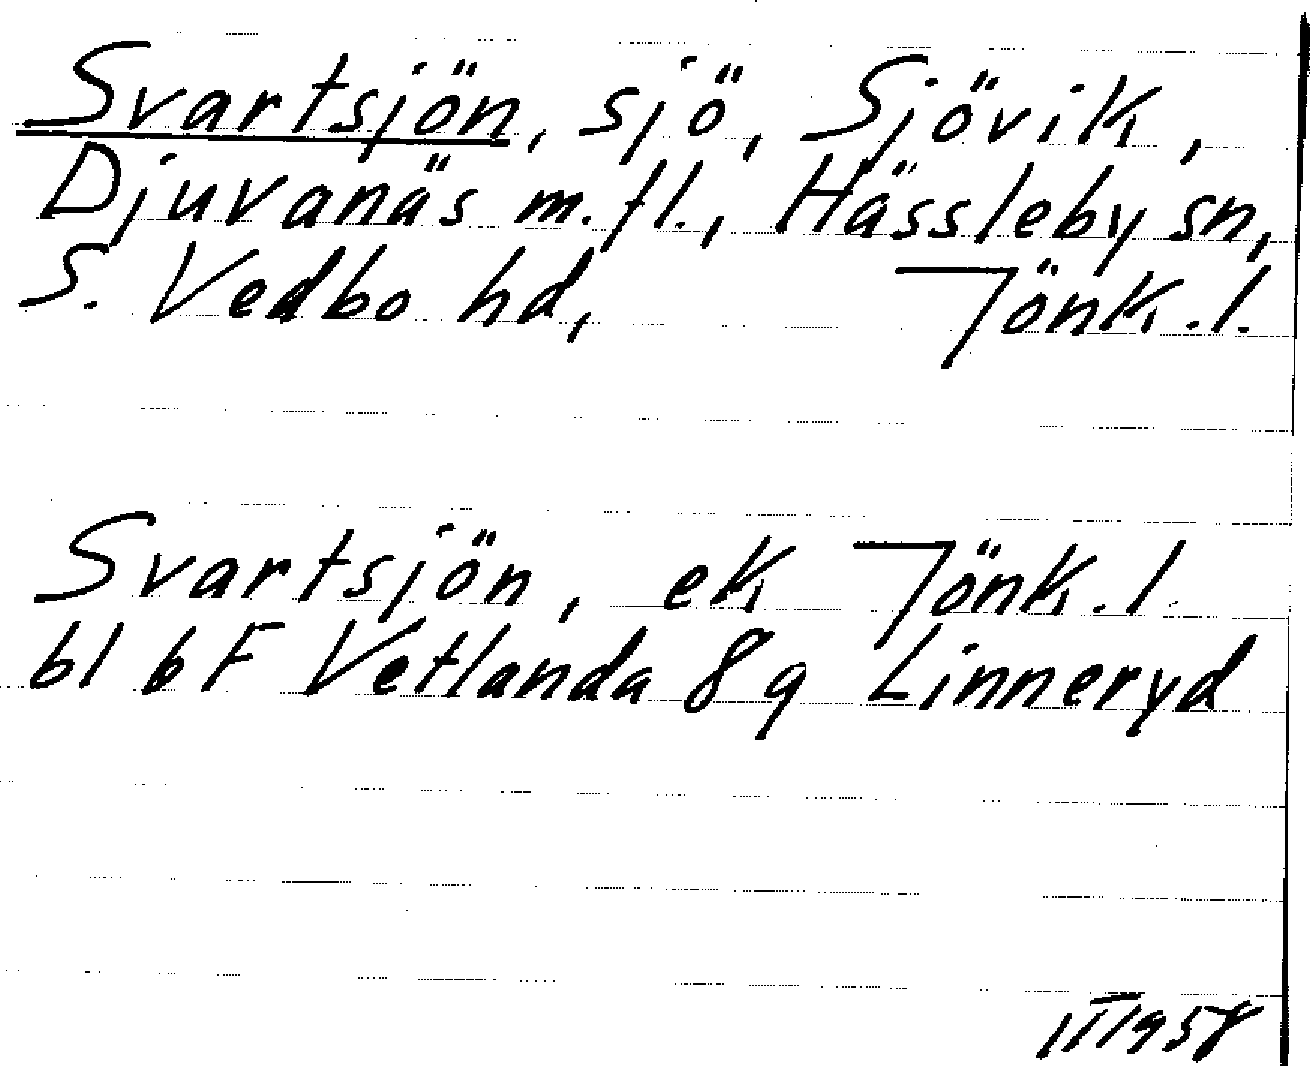 Svartsjön, sjö, Sjövik,
Djuvanäs m.fl., Hässleby sn,
S. Vedbo hd, Jönk.l.
Svartsjön, ek Jönk.l.
bl 6F Vetlanda 8g Linneryd
1958